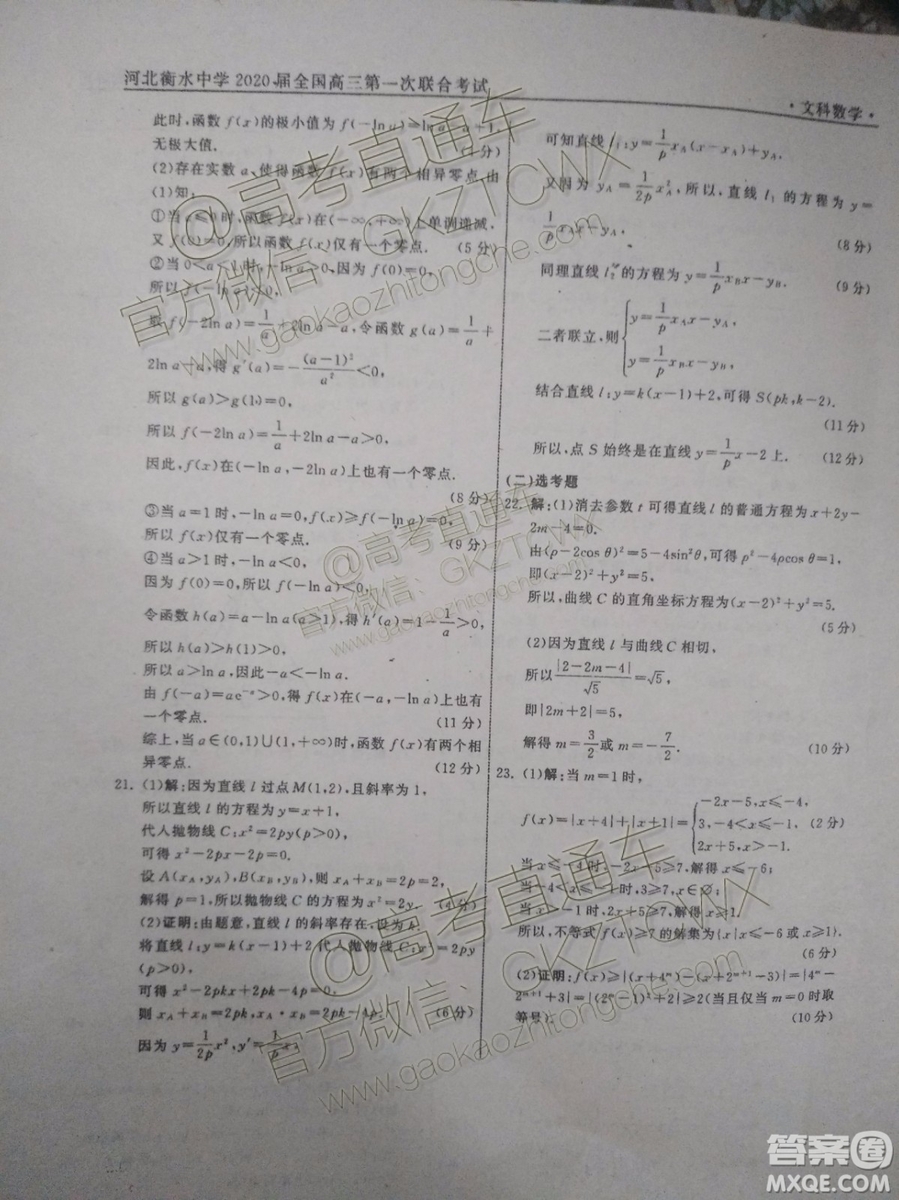 河北衡水中学2020届全国高三第一次联合考试
·文科数学·
此时,函数 f(x)的极小值为 f(-ln a)≥ln a-a+1,
无极大值. (4分)
(2)存在实数 a,使得函数 f(x)有两个相异零点,由
(1)知:
①当 a≤0 时,函数 f(x)在(-∞,+∞)上单调递减.
又 f(0)=0,所以函数 f(x)仅有一个零点. (5分)
②当 0<a<1 时,-ln a>0,因为 f(0)=0,
则 f(-2ln a)=1/a+2ln a-a,令函数 g(a)=1/a+
2ln a-a,得 g′(a)=-(a-1)²/a²<0,
所以 g(a)>g(1)=0,
所以 f(-2ln a)=1/a+2ln a-a>0,
因此,f(x)在(-ln a,-2ln a)上也有一个零点.
(8分)
③当 a=1 时,-ln a=0,f(x)≥f(-ln a)=0,
所以 f(x)仅有一个零点. (9分)
④当 a>1 时,-ln a<0,
因为 f(0)=0,所以 f(-ln a)<0,
令函数 h(a)=a-ln a(a≥1),得 h′(a)=1-1/a>0,
所以 h(a)>h(1)>0,
所以 a>ln a,因此-a<-ln a.
由 f(-a)=ae⁻ᵃ>0,得 f(x)在(-a,-ln a)上也有
一个零点. (11分)
综上,当 a∈(0,1)∪(1,+∞)时,函数 f(x)有两个相
异零点. (12分)
21.(1)解:因为直线 l 过点 M(1,2),且斜率为 1,
所以直线 l 的方程为 y=x+1,
代入抛物线 C:x²=2py(p>0),
可得 x²-2px-2p=0.
设 A(x_A,y_A),B(x_B,y_B),则 x_A+x_B=2p=2,
解得 p=1,所以抛物线 C 的方程为 x²=2y. (4分)
(2)证明:由题意,直线 l 的斜率存在,设为 k.
将直线 l:y=k(x-1)+2 代入抛物线 C:x²=2py
(p>0),
可得 x²-2pkx+2pk-4p=0.
则 x_A+x_B=2pk,x_A·x_B=2pk-4p. (6分)
因为 y=1/2p x²,y′=1/p x,
可知直线 l₁:y=1/p x_A(x-x_A)+y_A.
又因为 y_A=1/2p x_A²,所以,直线 l₁ 的方程为 y=
1/p x_A x-y_A. (8分)
同理直线 l₂ 的方程为 y=1/p x_B x-y_B. (9分)
二者联立,则 { y=1/p x_A x-y_A,
y=1/p x_B x-y_B,
结合直线 l:y=k(x-1)+2,可得 S(pk,k-2).
(11分)
所以,点 S 始终是在直线 y=1/p x-2 上. (12分)
(二)选考题
22.解:(1)消去参数 t 可得直线 l 的普通方程为 x+2y-
2m-4=0.
由(ρ-2cos θ)²=5-4sin²θ,可得 ρ²-4ρcos θ=1,
即(x-2)²+y²=5,
所以,曲线 C 的直角坐标方程为(x-2)²+y²=5.
(5分)
(2)因为直线 l 与曲线 C 相切,
所以|2-2m-4|/√5=√5,
即|2m+2|=5,
解得 m=3/2或 m=-7/2. (10分)
23.(1)解:当 m=1 时,
f(x)=|x+4|+|x+1|={ -2x-5,x≤-4,
3,-4<x≤-1, (2分)
2x+5,x>-1.
当 x≤-4 时,-2x-5≥7,解得 x≤-6;
当-4<x≤-1时,3≥7,解得 x∈∅;
当 x>-1 时,2x+5≥7,解得 x≥1.
所以,不等式 f(x)≥7 的解集为{x|x≤-6 或 x≥1}.
(6分)
(2)证明:f(x)≥|(x+4ᵐ)-(x+2ᵐ⁺¹-3)|=|4ᵐ-
2ᵐ⁺¹+3|=|(2ᵐ-1)²+2|≥2(当且仅当 m=0 时取
等号). (10分)
@高考直通车
官方微信:GKZTCWX
www.gaokaozhitongche.com
@高考直通车
官方微信:GKZTCWX
www.gaokaozhitongche.com
@高考直通车
官方微信:GKZTCWX
www.gaokaozhitongche.com
答案圈
MXQE.COM